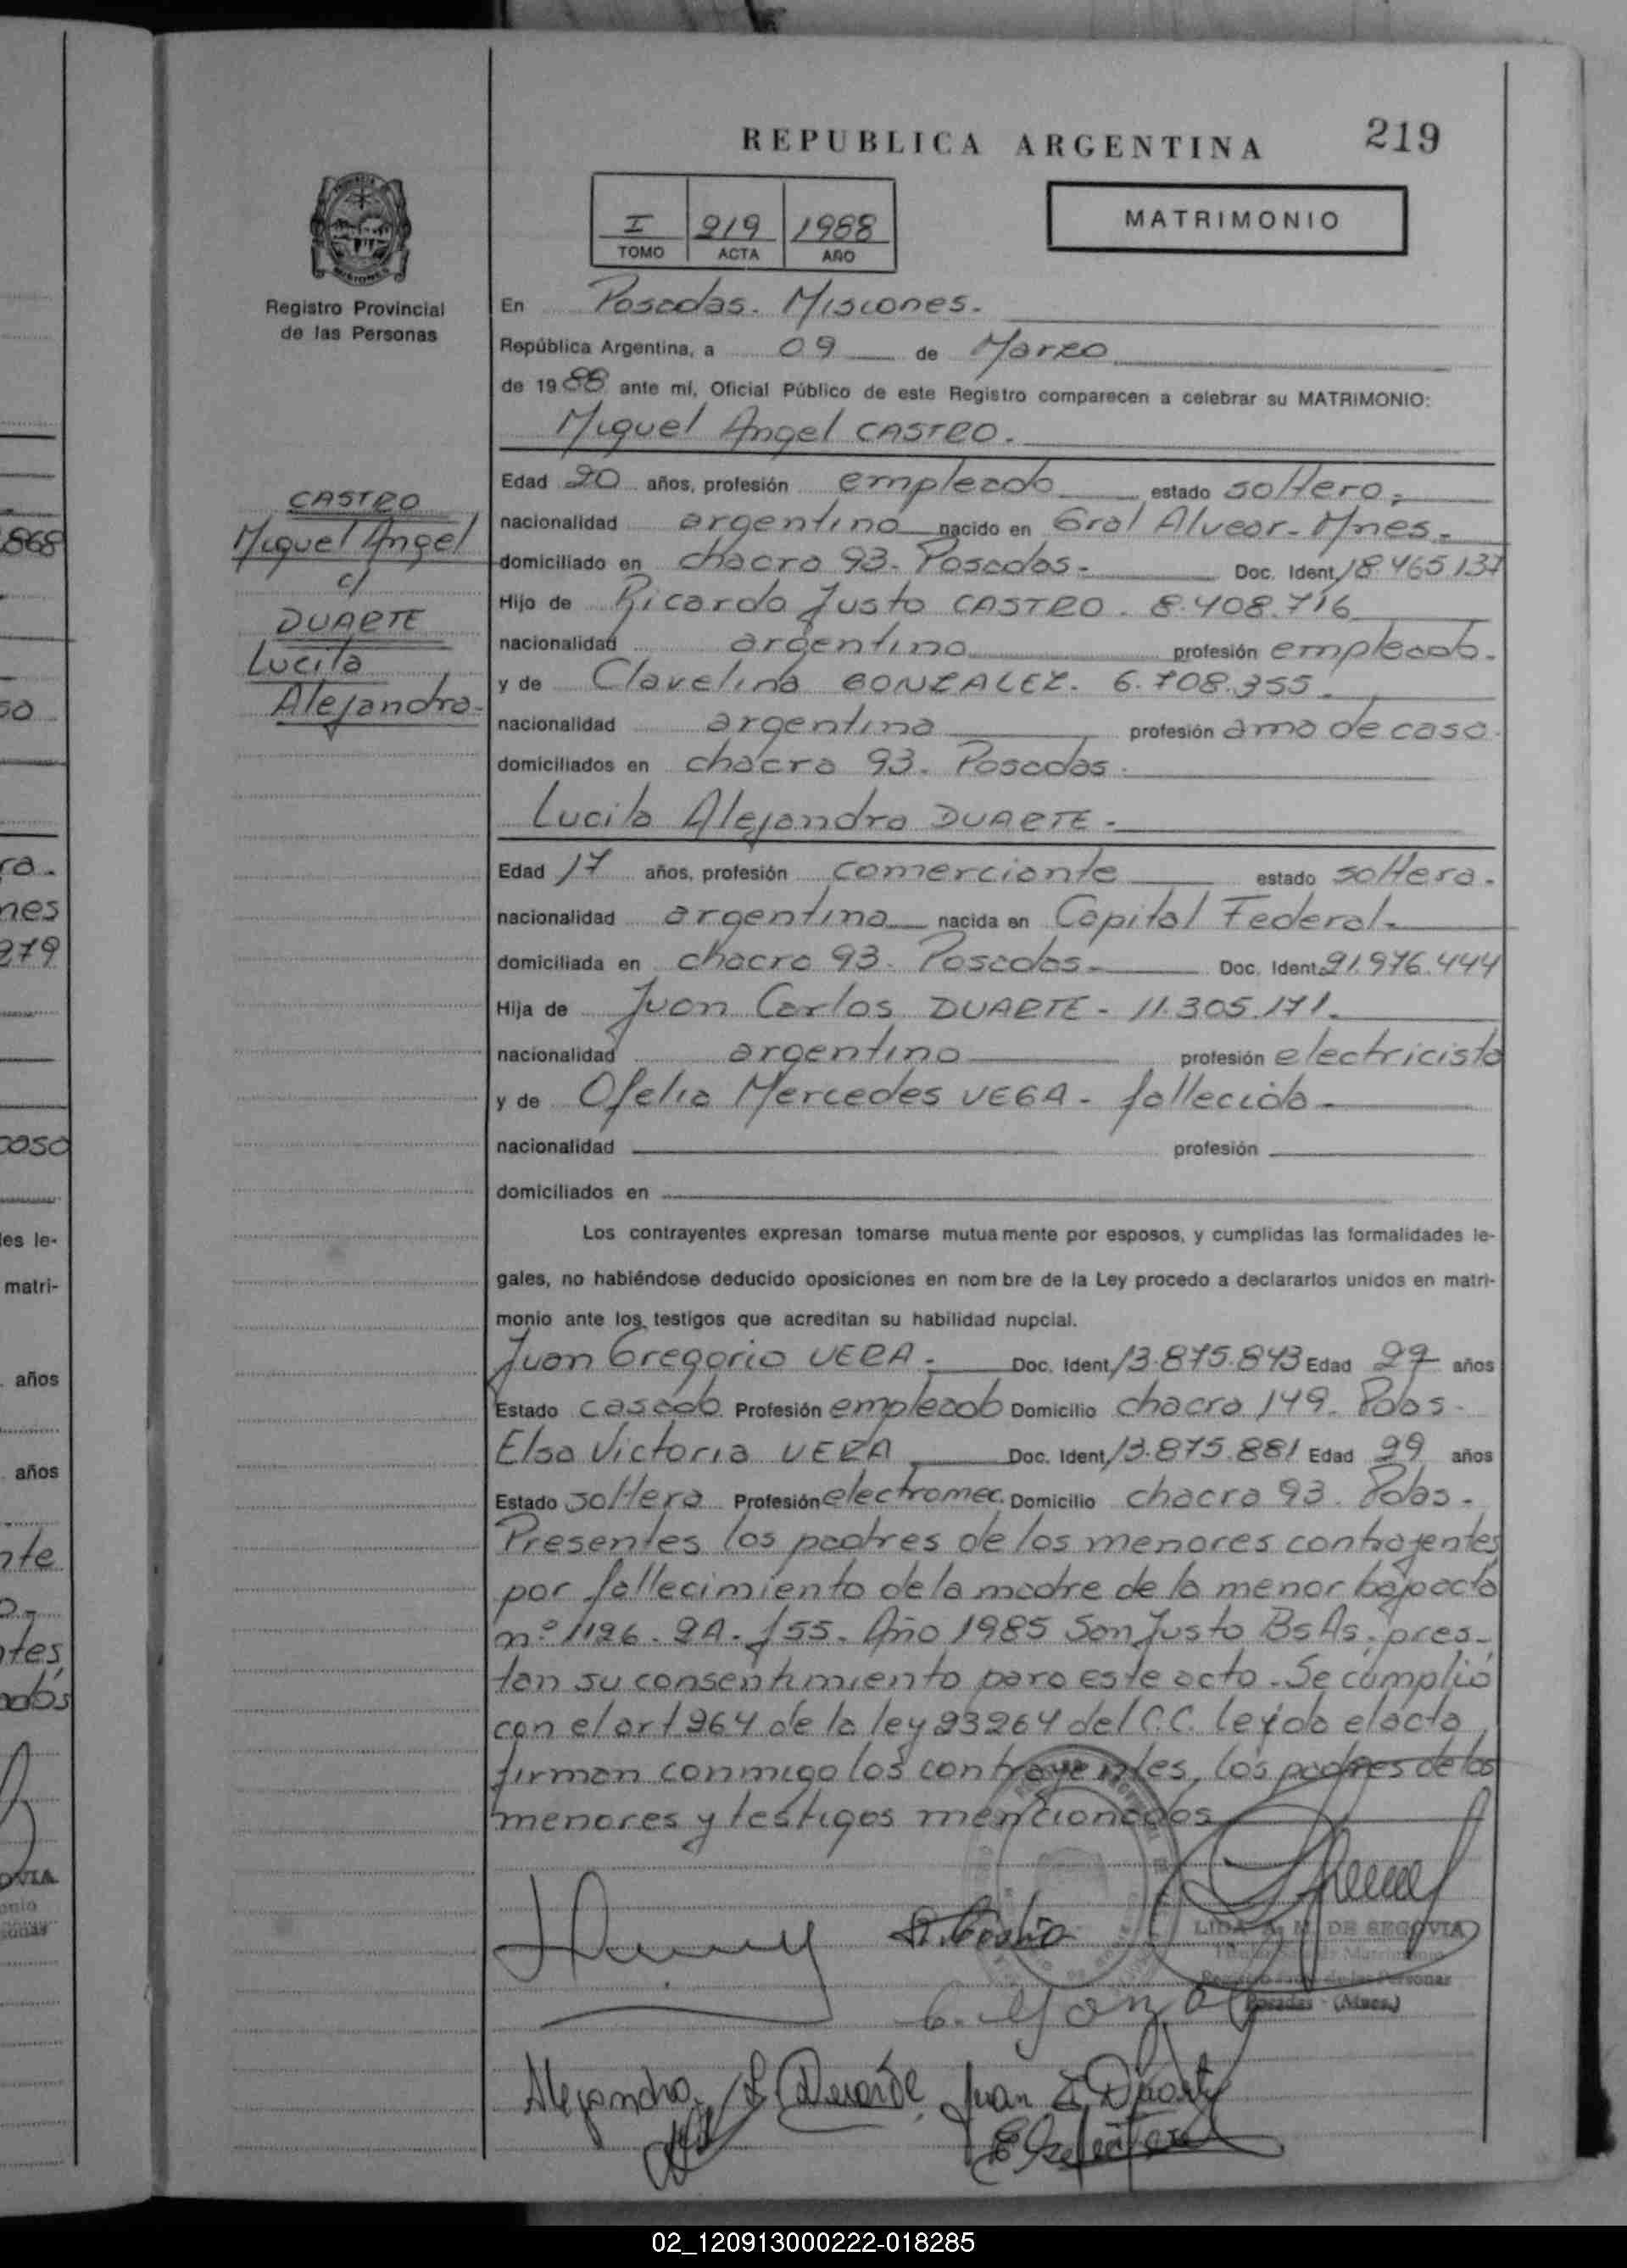 REPUBLICA ARGENTINA
219
MATRIMONIO
I 219 1988
TOMO ACTA AÑO
Registro Provincial
de las Personas
En Posadas. Misiones.
República Argentina, a 09 de Marzo
de 1988 ante mí, Oficial Público de este Registro comparecen a celebrar su MATRIMONIO:
Miguel Angel CASTRO.
CASTRO
Miguel Angel
c/
DUARTE
Lucila
Alejandra-
Edad 20 años, profesión empleado estado soltero.
nacionalidad argentino nacido en Gral Alvear-Mnes-
domiciliado en chacra 93. Posadas- Doc. Ident. 18.465.137
Hijo de Ricardo Justo CASTRO. 8.408.716
nacionalidad argentino profesión empleado.
y de Clavelina GONZALEZ. 6.708.355.
nacionalidad argentina profesión ama de casa.
domiciliados en chacra 93. Posadas.
Lucila Alejandra DUARTE-
Edad 17 años, profesión comerciante estado soltera.
nacionalidad argentina nacida en Capital Federal-
domiciliada en chacra 93. Posadas- Doc. Ident. 21.976.444
Hija de Juan Carlos DUARTE- 11.305.171.
nacionalidad argentino profesión electricista
y de Ofelia Mercedes VEGA- fallecida-
nacionalidad profesión
domiciliados en
Los contrayentes expresan tomarse mutua mente por esposos, y cumplidas las formalidades le-
gales, no habiéndose deducido oposiciones en nom bre de la Ley procedo a declararlos unidos en matri-
monio ante los testigos que acreditan su habilidad nupcial.
Juan Gregorio VERA- Doc. Ident. 13.875.843 Edad 27 años
Estado casado Profesión empleado Domicilio chacra 149. Pdas.
Elsa Victoria VERA Doc. Ident. 13.875.881 Edad 29 años
Estado soltera Profesión electromec. Domicilio chacra 93. Pdas.
Presentes los padres de los menores contrayentes
por fallecimiento de la madre de la menor bajo acta
n.º 1126. 2A. f 55. Año 1985 San Justo Bs As. pres-
tan su consentimiento para este acto. Se cumplió
con el art 264 de la ley 23264 del C.C. leída el acta
firman conmigo los contrayentes, los padres de los
menores y testigos mencionados
LIDA A. M. DE SEGOVIA
Posadas - (Mnes.)
Alejandra L Duarte Juan C Duarte
02_120913000222-018285